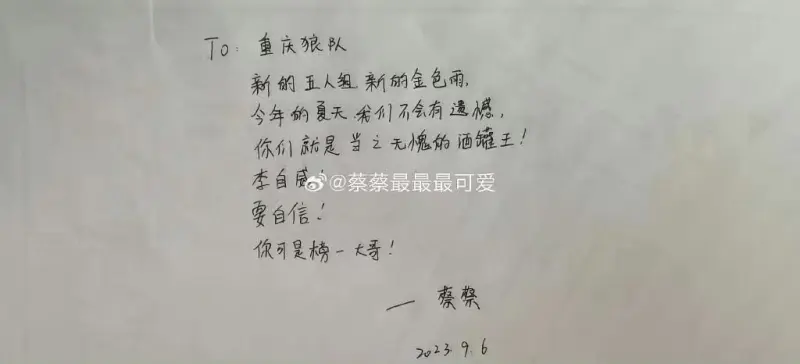 To: 重庆狼队
新的五人组 新的金色雨,
今年的夏天 我们不会有遗憾,
你们就是当之无愧的酒罐王!
李自威!
@蔡蔡最最最可爱
要自信!
你可是榜一大哥!
— 蔡蔡
2023.9.6